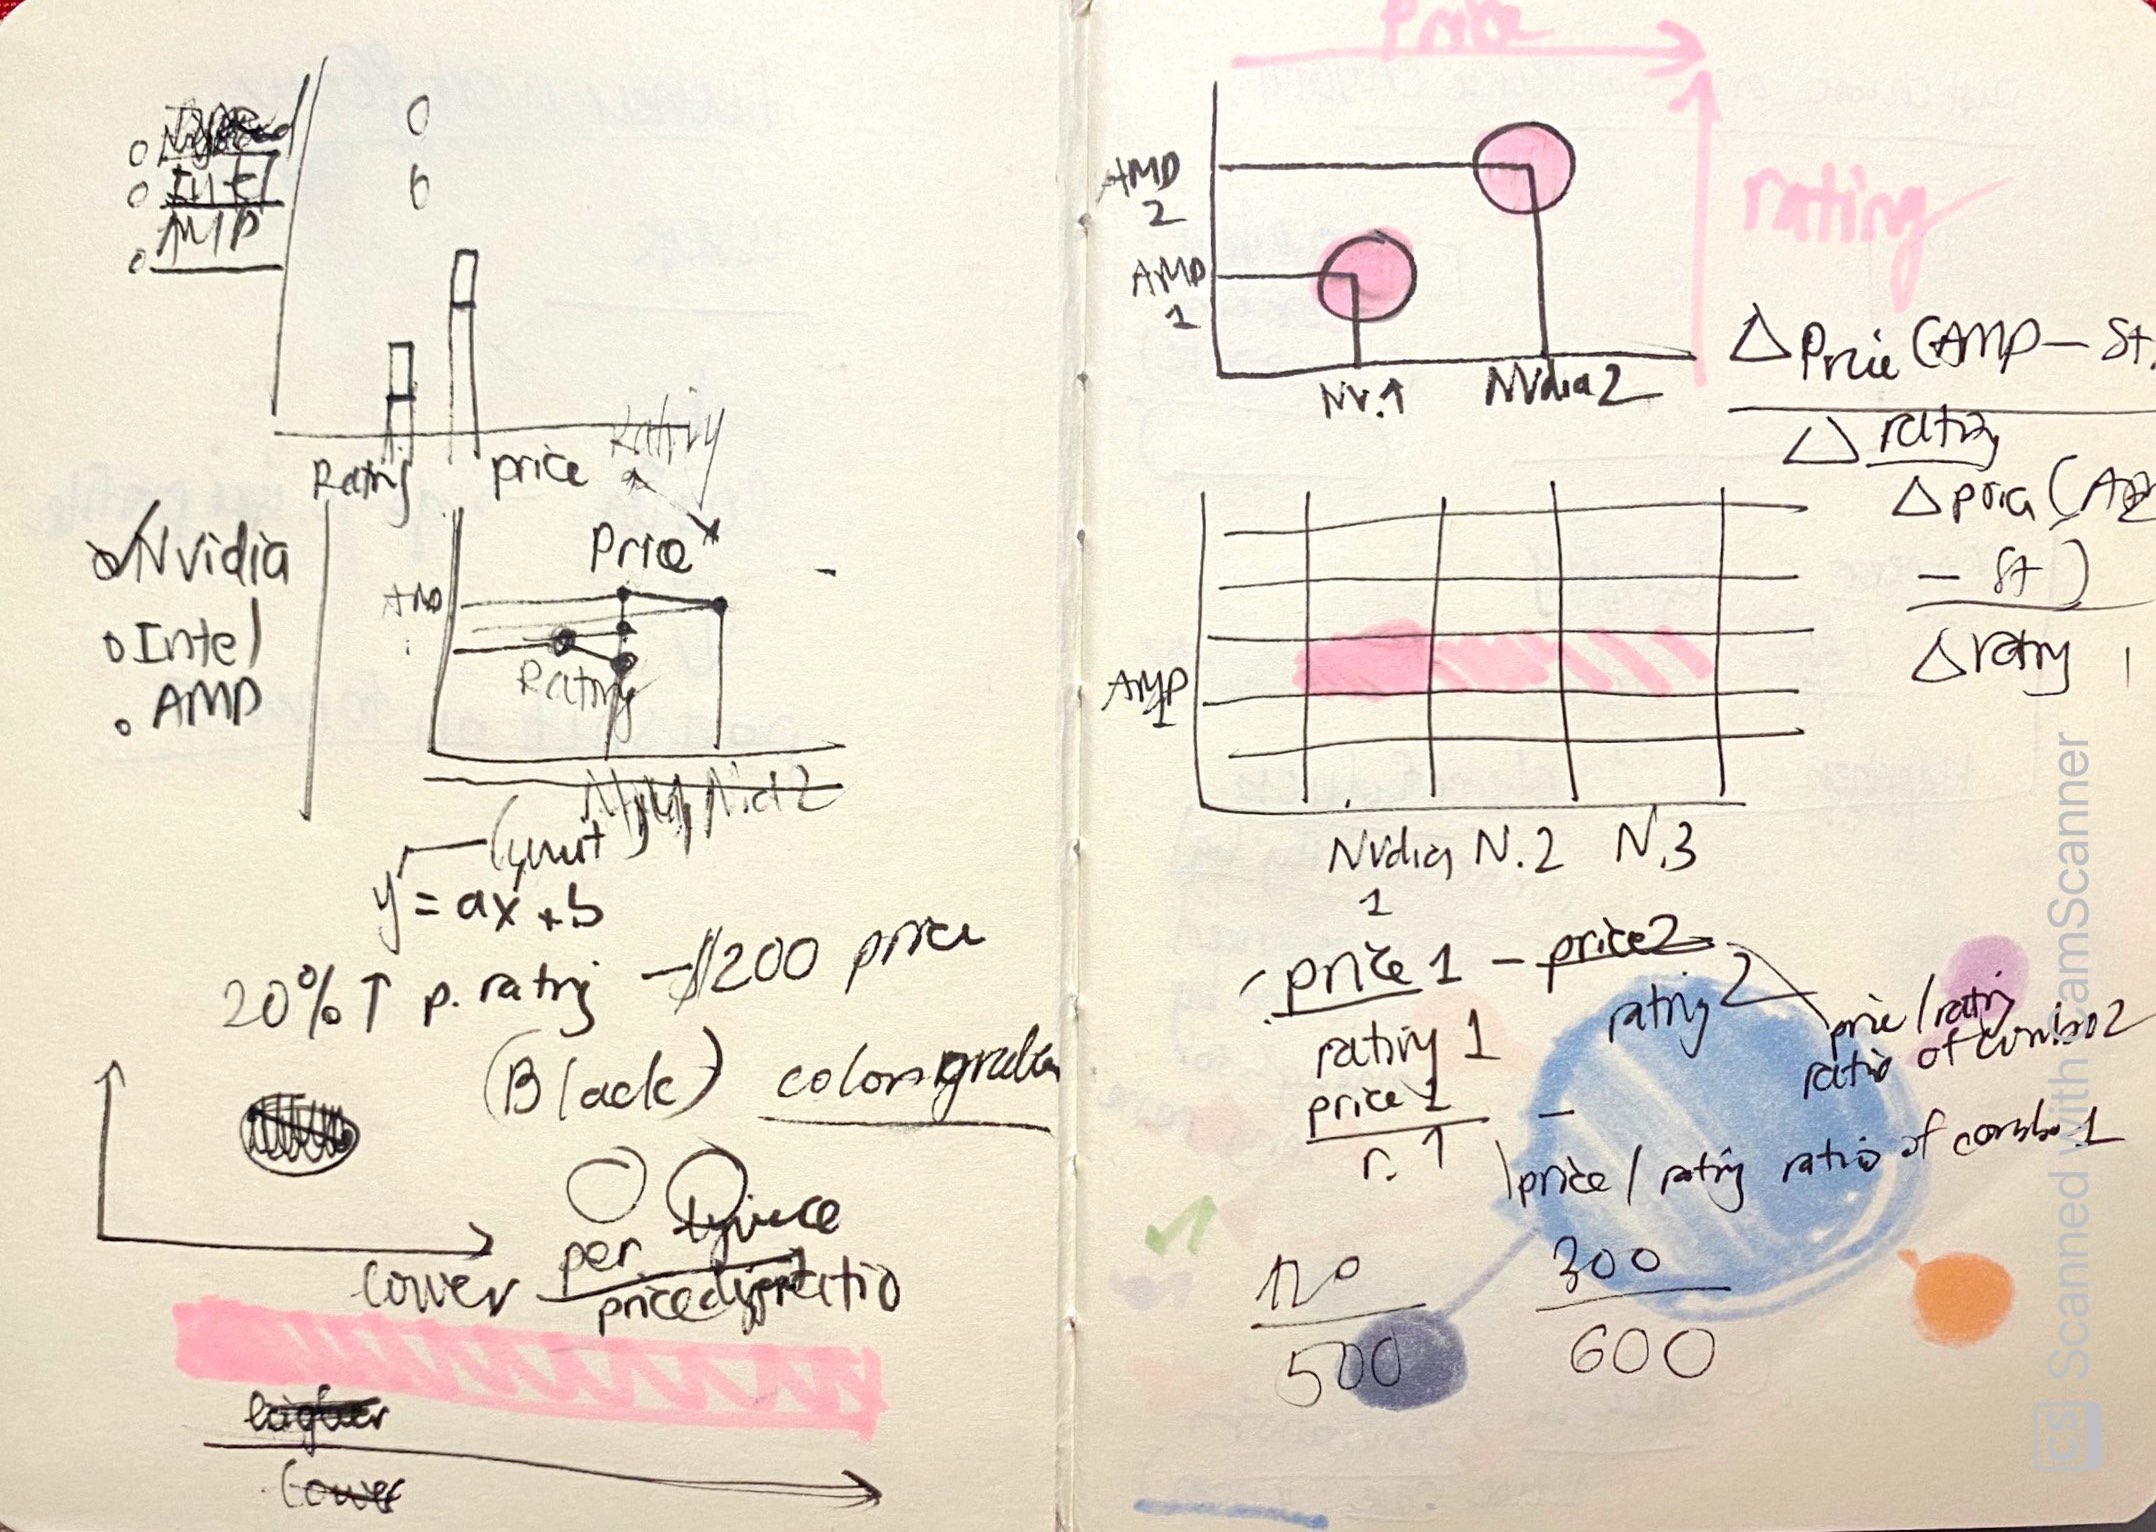 Intel
AMD
Rating
price
Rating
Nvidia
Intel
AMD
Price
AMD
Rating
N.id 2
y = ax + b
20% ↑ p. rating - $200 price
(Black)
color
lower
per.
price
ratio
higher
lower
Price
rating
AMD
2
AMD
1
NV.1
NVdia 2
Δ Price (AMD - St.
Δ rating
Δ price (
- St)
Δ rating
AMD
1
Nvidia N.2 N.3
1
price 1 - price 2
rating 1
rating 2
price / rating
ratio of combo 2
price 1
r. 1
-
price / rating ratio of combo 1
120
500
300
600
CS Scanned with CamScanner